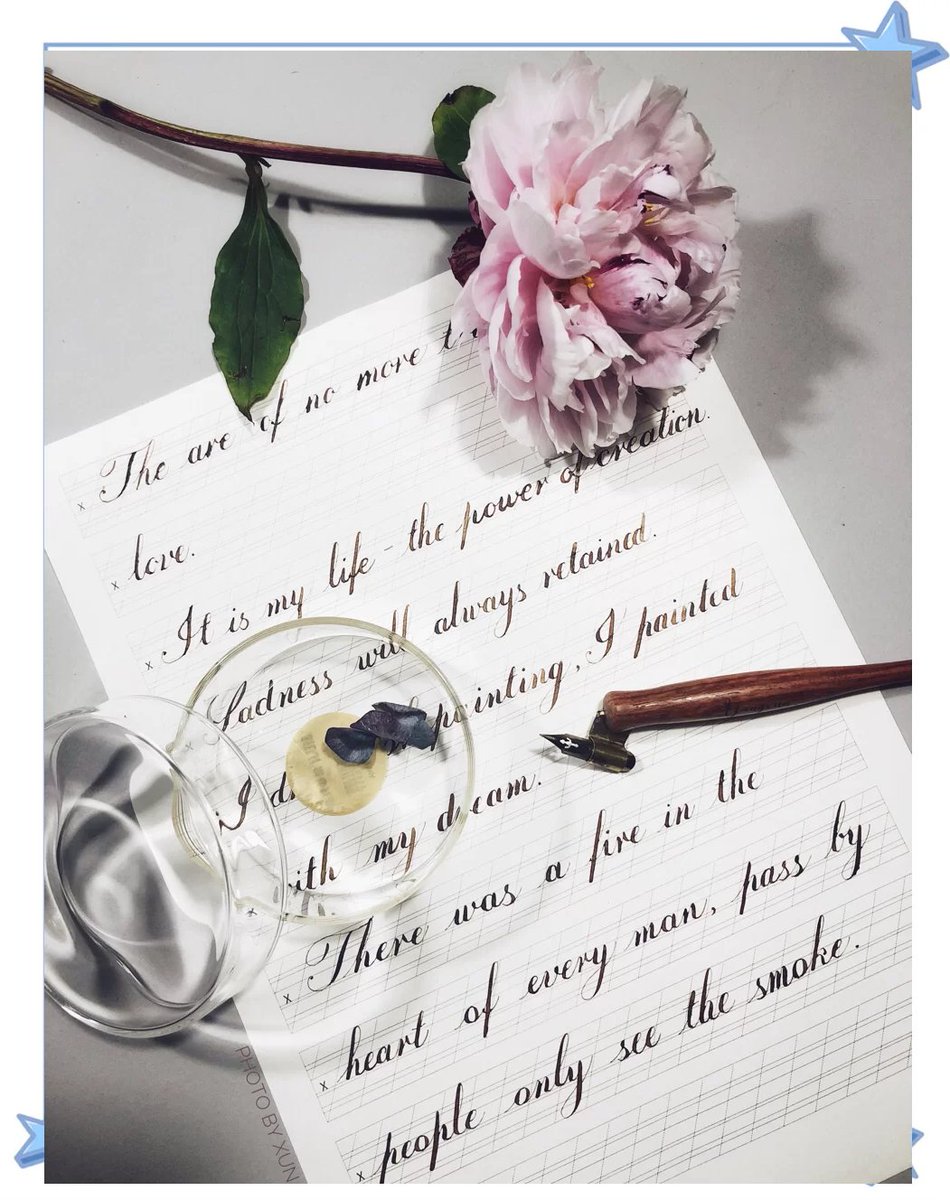 The are of no more
love.
It is my life - the power of creation.
Sadness will always retained.
I painting, I painted
with my dream.
There was a fire in the
heart of every man, pass by
people only see the smoke.
PHOTO BY XUN